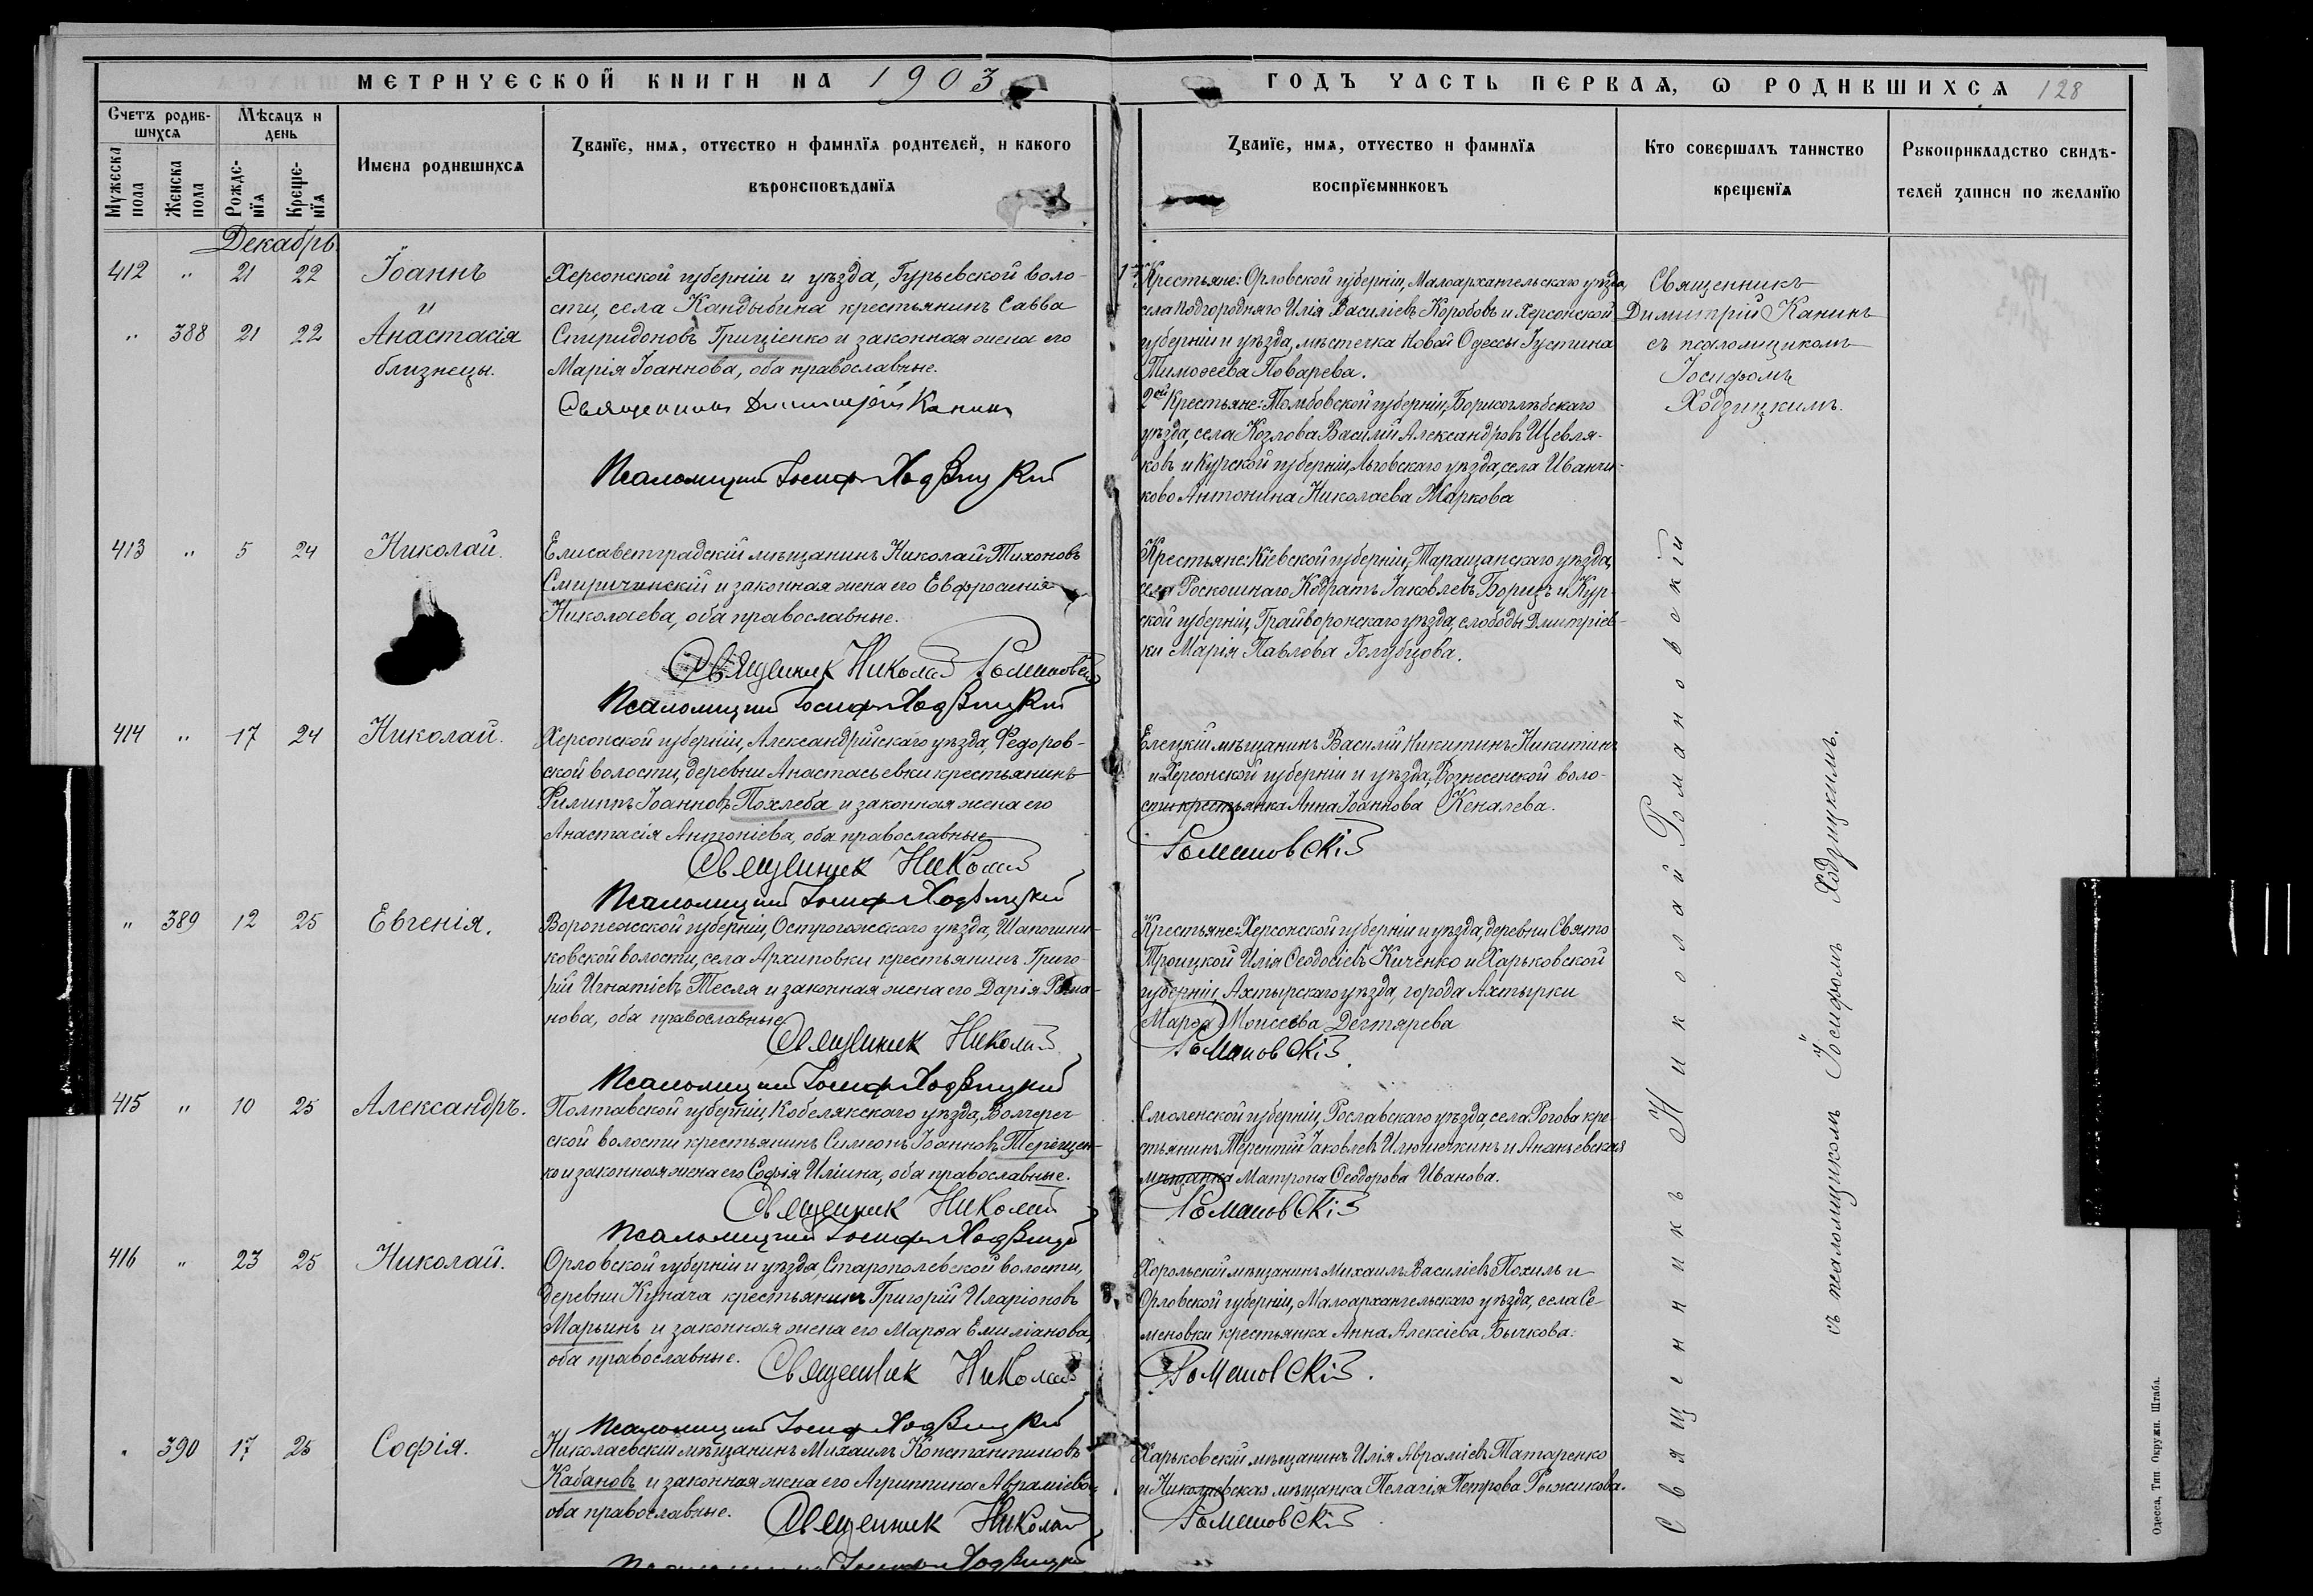 МЕТРИЧЕСКОЙ КНИГИ НА 1903
ГОДЪ ЧАСТЬ ПЕРВАЯ, Ѡ РОДИВШИХСЯ 128
Счетъ родив-
шихся
Мѣсяцъ и
день
Мужеска
пола
Женска
пола
Рожде-
нїя
Креще-
нїя
Имена родившихся
Званїе, имя, отчество и фамилїя родителей, и какого
вѣроисповѣданїя
Званїе, имя, отчество и фамилїя
воспрїемниковъ
Кто совершалъ таинство
крещенїя
Рукоприкладство свидѣ-
телей записи по желанїю
Декабрь
412 " 21 22 Іоаннъ
и
" 388 21 22 Анастасія
близнецы.
Херсонской губерніи и уѣзда, Гурьевской воло-
сти, села Кандыбина крестьянинъ Савва
Спиридоновъ Гриціенко и законная жена его
Марія Іоаннова, оба православные.
Священникъ Димитрій Канинъ
Псаломщикъ Іосифъ Ходзицкій
1) Крестьяне: Орловской губерніи, Малоархангельскаго уѣзда,
села Подгородняго Илія Василіевъ Коробовъ и Херсонской
губерніи и уѣзда, мѣстечка Новой Одессы Густина
Тимоѳеева Поварева.
2ой Крестьяне: Томбовской губерніи, Борисоглѣбскаго
уѣзда, села Козлова Василій Александровъ Щевля-
ковъ и Курской губерніи, Льговскаго уѣзда, села Иванчи-
ково Антонина Николаева Жаркова
Священникъ
Димитрій Канинъ
съ псаломщикомъ
Іосифомъ
Ходзицкимъ.
413 " 5 24 Николай.
Елисаветградскій мѣщанинъ Николай Тихоновъ
Смиричинскій и законная жена его Евфросинія
Николаева, оба православные.
Священник Николай Романовскій
Псаломщикъ Іосифъ Ходзицкій
Крестьяне: Кіевской губерніи, Таращанскаго уѣзда,
села Роскошнаго Кодратъ Іаковлевъ Борицъ и Кур-
ской губерніи, Грайворонскаго уѣзда, слободы Дмитріев-
ки Марія Павлова Голубцова.
414 " 17 24 Николай.
Херсонской губерніи, Александрійскаго уѣзда, Федоров-
ской волости, деревни Анастасьевки крестьянинъ
Филиппъ Іоанновъ Похлеба и законная жена его
Анастасія Антоніева, оба православные
Священник Николай
Псаломщикъ Іосифъ Ходзицкій
Елецкій мѣщанинъ Василій Никитинъ Никитинъ
и Херсонской губерніи и уѣзда, Вознесенской воло-
сти крестьянка Анна Іоаннова Кеналева.
Романовскій
" 389 12 25 Евгенія.
Воронежской губерніи, Острогожскаго уѣзда, Шапошни-
ковской волости, села Архиповки крестьянинъ Григо-
рій Игнатіевъ Тесля и законная жена его Дарія Рома-
нова, оба православные
Священник Николай
Псаломщикъ Іосифъ Ходзицкій
Крестьяне: Херсонской губерніи и уѣзда, деревни Свято
Троицкой Илія Ѳеодосіевъ Киченко и Харьковской
губерніи, Ахтырскаго уѣзда, города Ахтырки
Марѳа Моисеева Дегтярева
Романовскій
415 " 10 25 Александръ.
Полтавской губерніи, Кобелякскаго уѣзда, Волчереч-
ской волости крестьянинъ Симеонъ Іоанновъ Терещен-
ко и законная жена его Софія Иліина, оба православные.
Священник Николай
Псаломщикъ Іосифъ Ходзицкій
Смоленской губерніи, Рославскаго уѣзда, села Рогова кре-
стьянинъ Терентій Іаковлевъ Илюшечкинъ и Ананьевская
мѣщанка Матрона Ѳеодорова Иванова.
Романовскій
416 " 23 25 Николай.
Орловской губерніи и уѣзда, Старополевской волости,
деревни Кунача крестьянинъ Григорій Иларіоновъ
Марьинъ и законная жена его Марѳа Емиліанова,
оба православные.
Священник Николай
Псаломщикъ Іосифъ Ходзицкій
Хорольскій мѣщанинъ Михаилъ Василіевъ Похиль и
Орловской губерніи, Малоархангельскаго уѣзда, села Се-
меновки крестьянка Анна Алексіева Бычкова.
Романовскій.
" 390 17 25 Софія.
Николаевскій мѣщанинъ Михаилъ Константиновъ
Кабановъ и законная жена его Агриппина Авраміева,
оба православные.
Священник Николай
Псаломщикъ Іосифъ Ходзицкій
Харьковскій мѣщанинъ Илія Авраміевъ Татаренко
и Николаевская мѣщанка Пелагія Петрова Рыжикова.
Романовскій
Священникъ Николай Романовскій
съ псаломщикомъ Іосифомъ Ходзицкимъ.
Одесса, Тип. Окружн. Штаба.